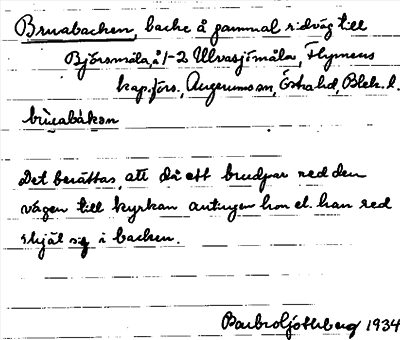 Bruabacken, backe å gammal ridväg till
Björsmåla, å 1-2 Ulvasjömåla, Flymens
kap.förs., Augerums sn, Östra hd, Blek. l.
brùabàkɘn
Det berättas, att då ett brudpar red den
vägen till kyrkan antingen hon el. han red
ihjäl sig i backen.
1934